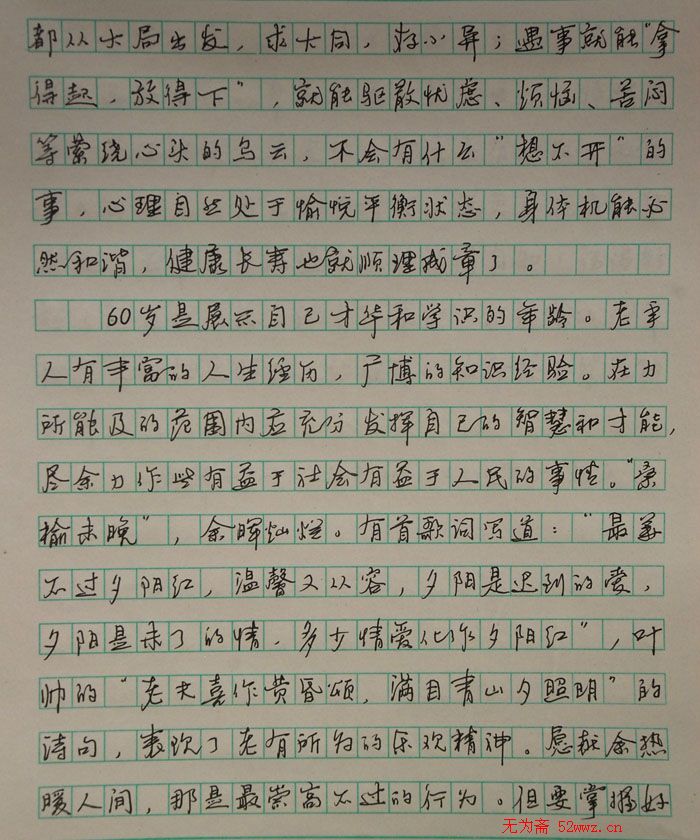 都从大局出发，求大同，存小异；遇事就能“拿
得起，放得下”，就能驱散忧虑、烦恼、苦闷
等萦绕心头的乌云，不会有什么“想不开”的
事，心理自然处于愉悦平衡状态，身体机能必
然和谐，健康长寿也就顺理成章了。
60岁是展示自己才华和学识的年龄。老年
人有丰富的人生经历，广博的知识经验。在力
所能及的范围内应充分发挥自己的智慧和才能，
尽余力作些有益于社会有益于人民的事情。“桑
榆未晚”，余晖灿烂。有首歌词写道：“最美
不过夕阳红，温馨又从容，夕阳是迟到的爱，
夕阳是未了的情，多少情爱化作夕阳红”，叶
帅的“老夫喜作黄昏颂，满目青山夕照明”的
诗句，表现了老有所为的乐观精神。愿献余热
暖人间，那是最崇高不过的行为。但要掌握好
无为斋 52wwz.cn